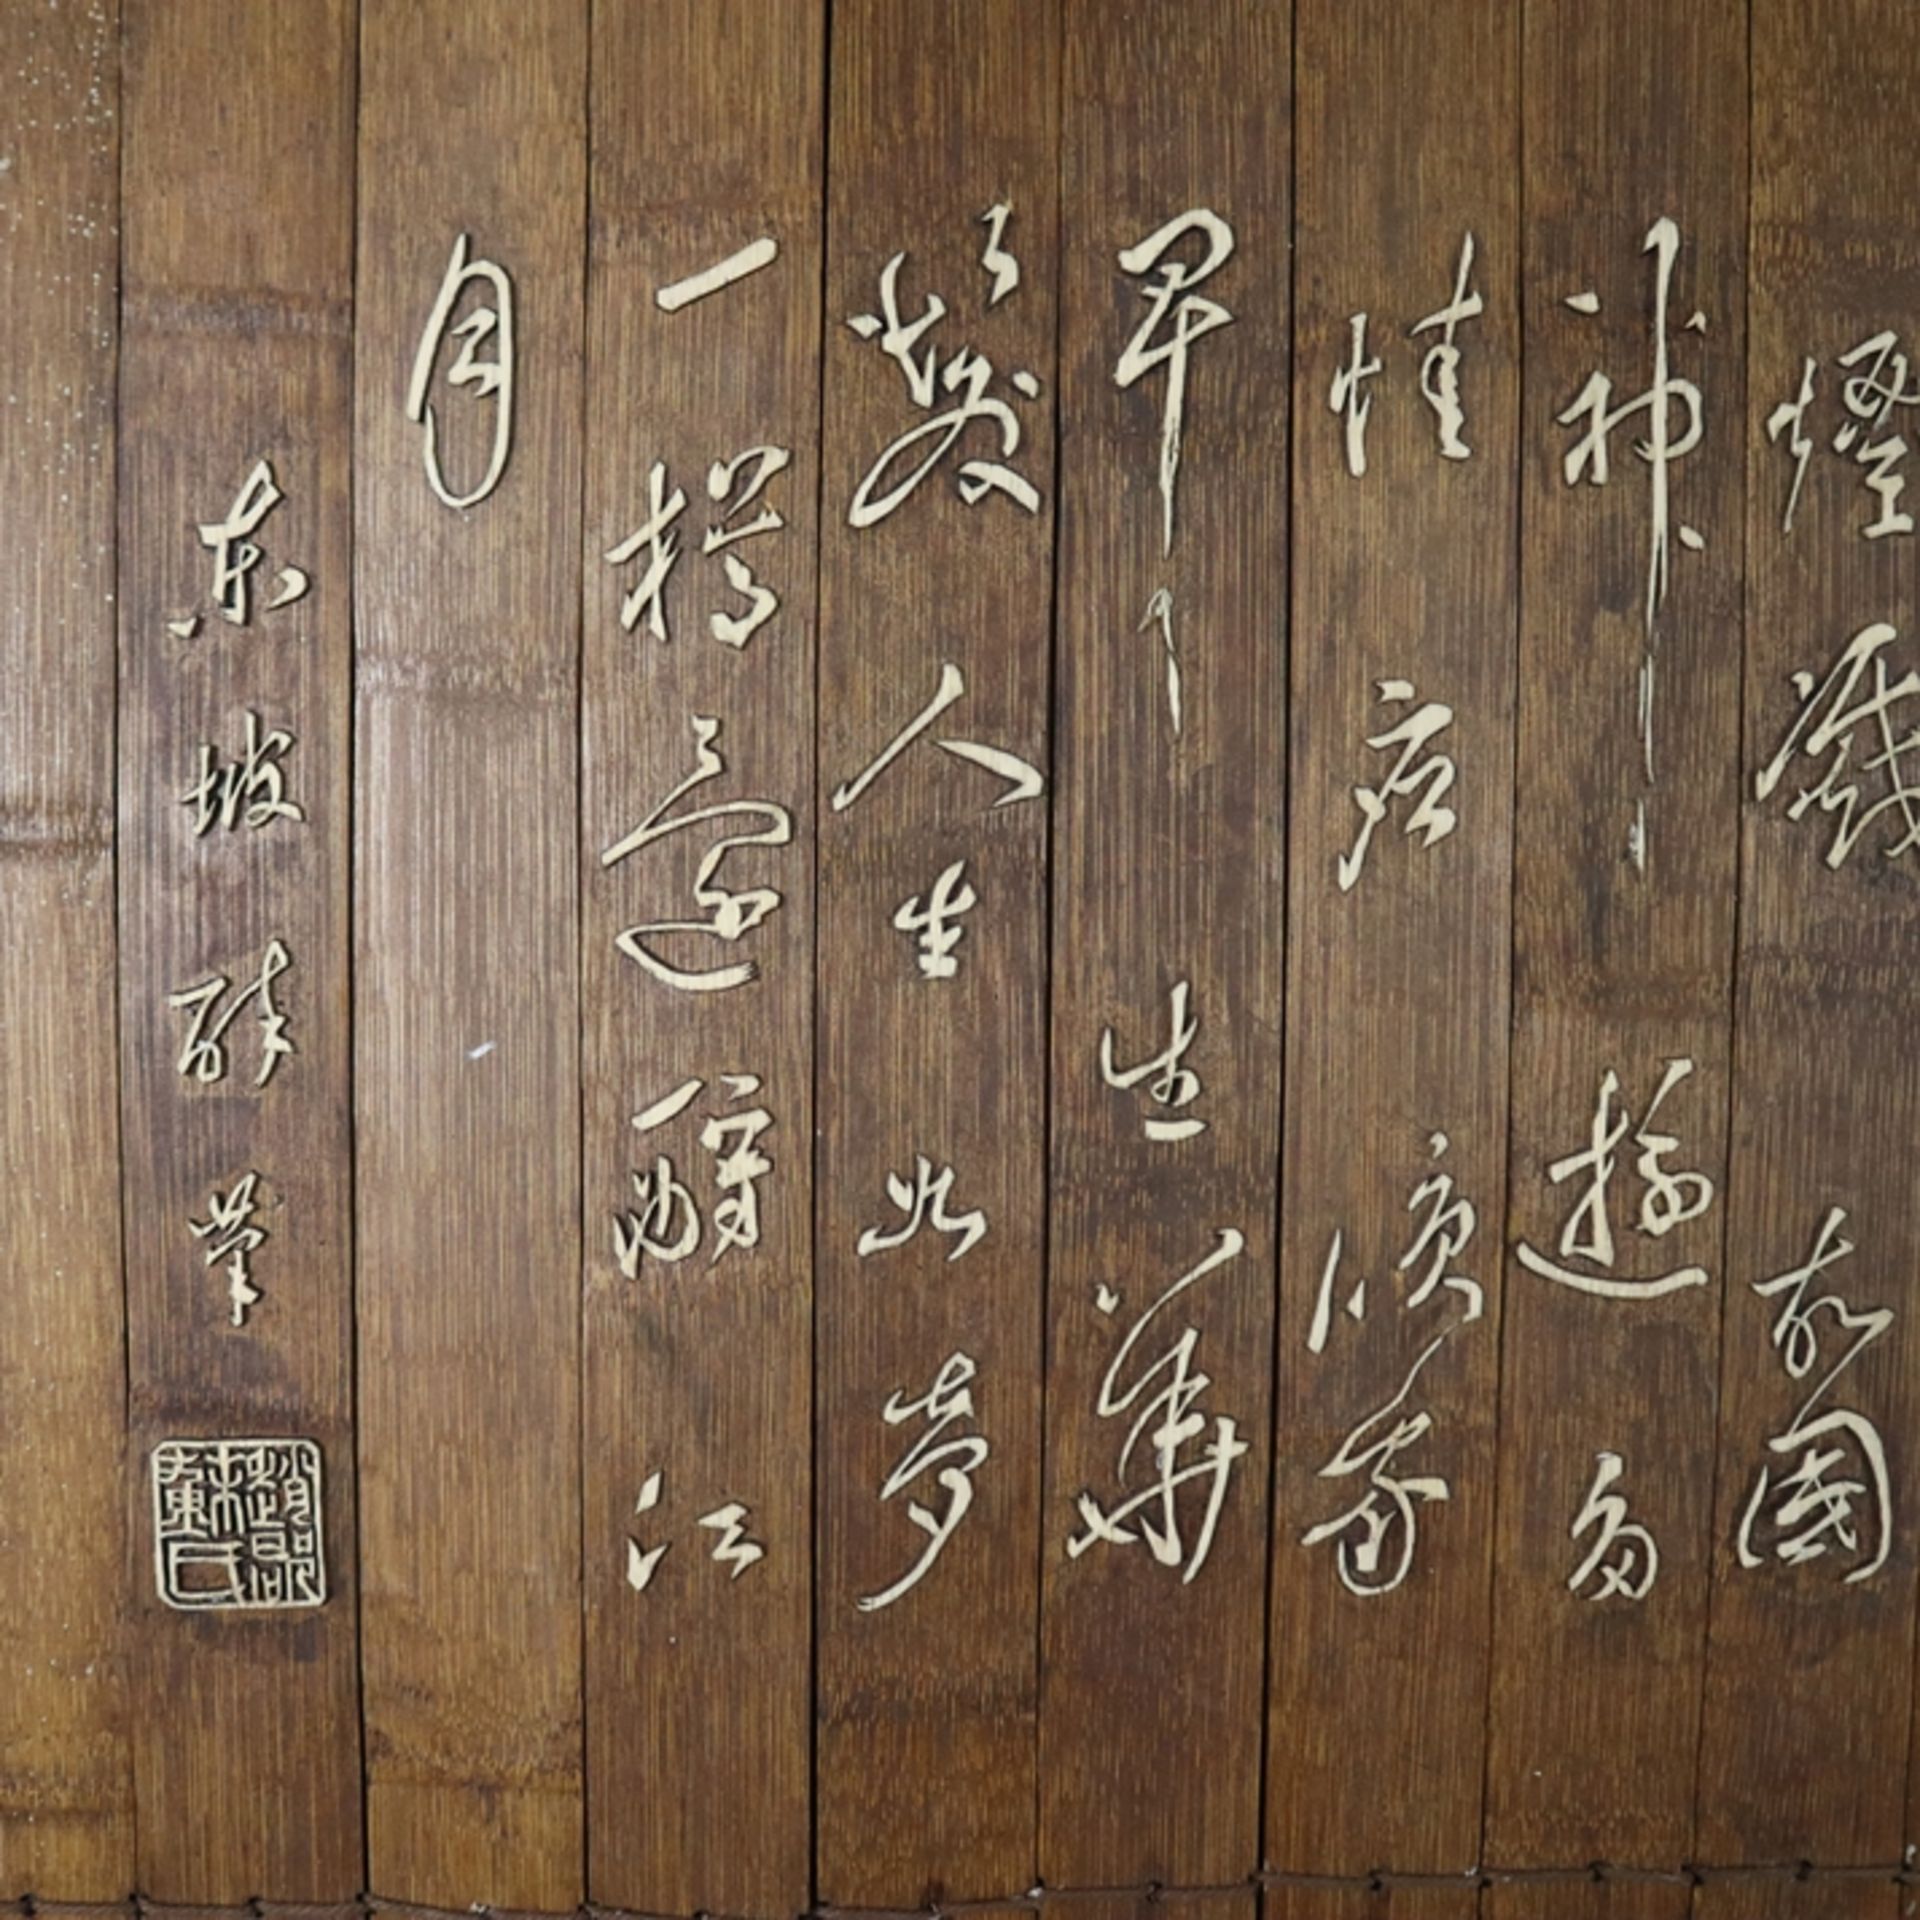 煙滅故國
神遊多
情應笑我
早生華
髮人生如夢
一樽還酹江
月
東坡醉筆